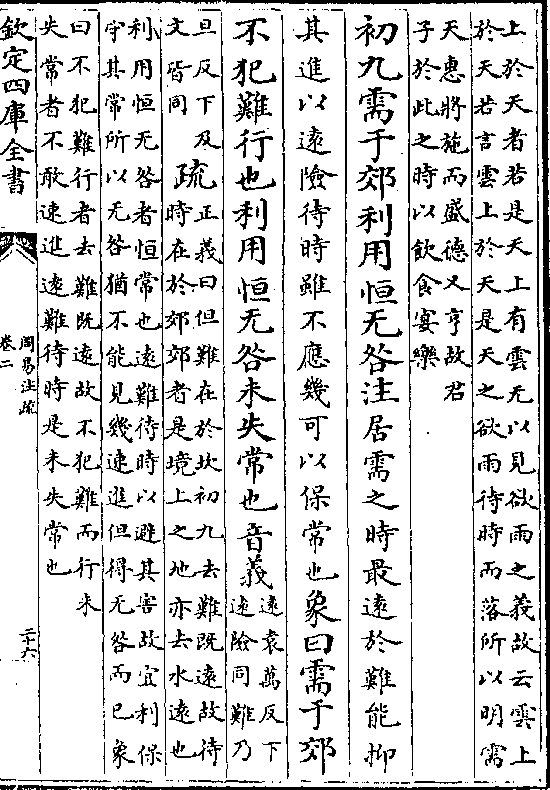 上於天者若是天上有雲无以見欲雨之義故云雲上
於天若言雲上於天是天之欲雨待時而落所以明需
天惠將施而盛德又亨故君
子於此之時以飲食宴樂
初九需于郊利用恒无咎注居需之時最遠於難能抑
其進以遠險待時雖不應幾可以保常也象曰需于郊
不犯難行也利用恒无咎未失常也音義
遠袁萬反下
遠險同難乃
旦反下及
文皆同
疏
正義曰但難在於坎初九去難既遠故待
時在於郊郊者是境上之地亦去水遠也
利用恒无咎者恒常也遠難待時以避其害故宜利保
守其常所以无咎猶不能見幾速進但得无咎而已象
曰不犯難行者去難既遠故不犯難而行未
失常者不敢速進遠難待時是未失常也
欽定四庫全書
周易注疏
卷二
二十六